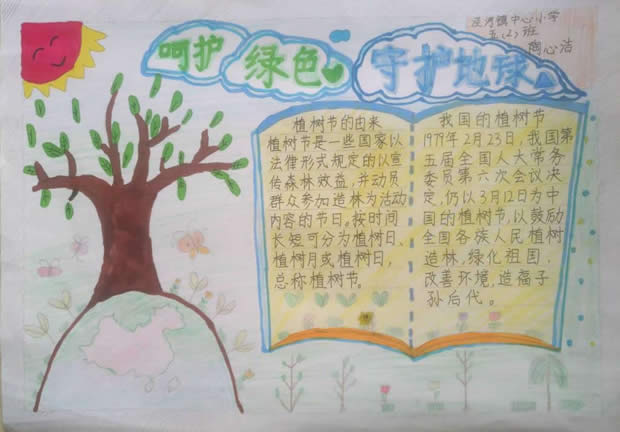 呵护绿色
守护地球
泾河镇中心小学
五(2)班
陶心洁
植树节的由来
植树节是一些国家以
法律形式规定的以宣
传森林效益,并动员
群众参加造林为活动
内容的节日。按时间
长短可分为植树日、
植树月或植树日,
总称植树节。
我国的植树节
1979年2月23日,我国第
五届全国人大常务
委员第六次会议决
定,仍以3月12日为中
国的植树节,以鼓励
全国各族人民植树
造林,绿化祖国,
改善环境,造福子
孙后代。